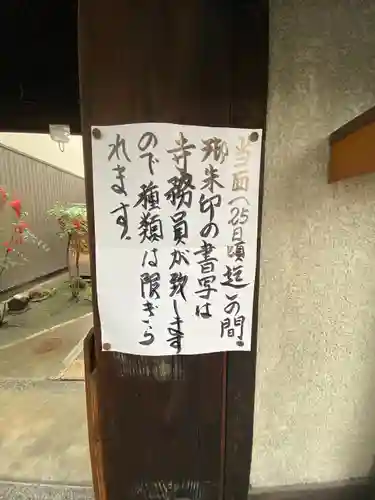 当面(25日頃迄)の間、
御朱印の書写は
寺務員が致します
ので種類は限ぎら
れます。